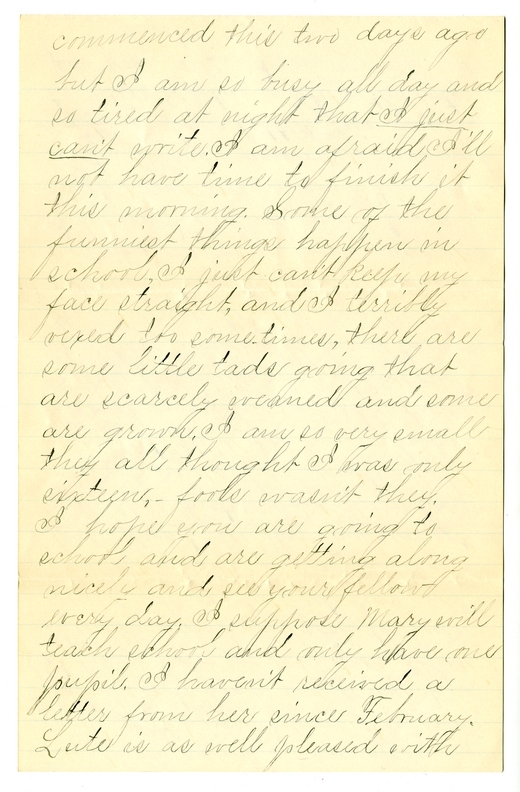 commenced this two days ago
but I am so busy all day and
so tired at night that I just
can't write. I am afraid I'll
not have time to finish it
this morning. Some of the
funniest things happen in
school, I just can't keep my
face straight, and I terribly
vexed too sometimes, there are
some little tads going that
are scarcely weaned and some
are grown. I am so very small
they all thought I was only
sixteen, - fools wasn't they.
I hope you are going to
school and are getting along
nicely and see your fellows
every day. I suppose Mary will
teach school and only have one
pupil. I haven't received a
letter from her since February.
Lute is as well pleased with